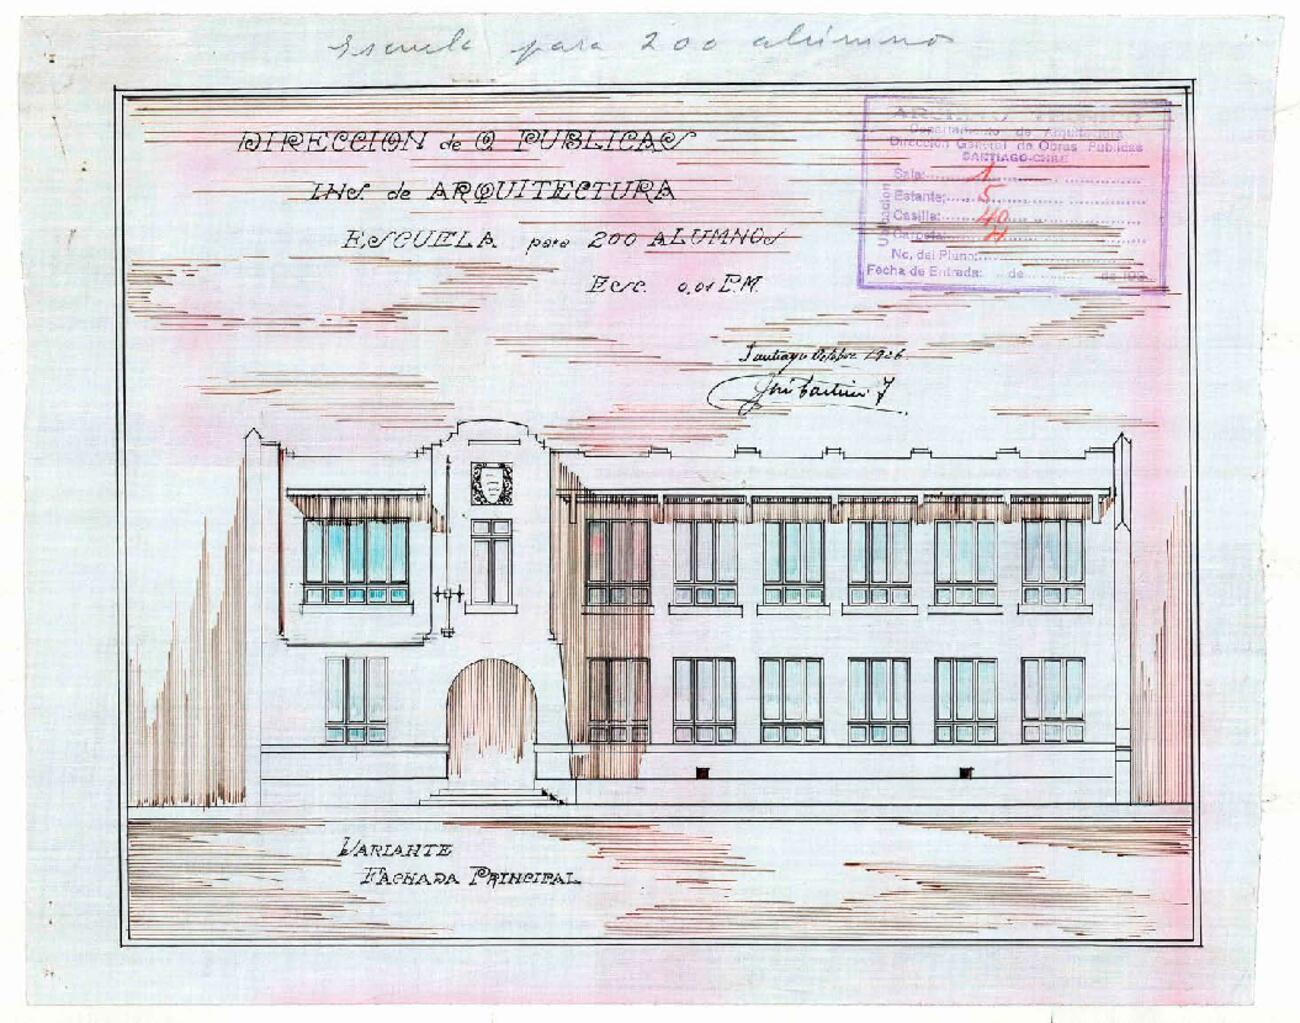 Escuela para 200 alumnos
DIRECCION de O PUBLICAS
INS. de ARQUITECTURA
ESCUELA para 200 ALUMNOS
Esc. 0,01 P.M.
ARCHIVO TECNICO
Departamento de Arquitectura
Dirección General de Obras Públicas
SANTIAGO-CHILE
Ubicación
Sala: 1
Estante: 5
Casilla: 40
Carpeta:
No. del Plano:
Fecha de Entrada: de de 19
Santiago Octubre 1926
VARIANTE
FACHADA PRINCIPAL